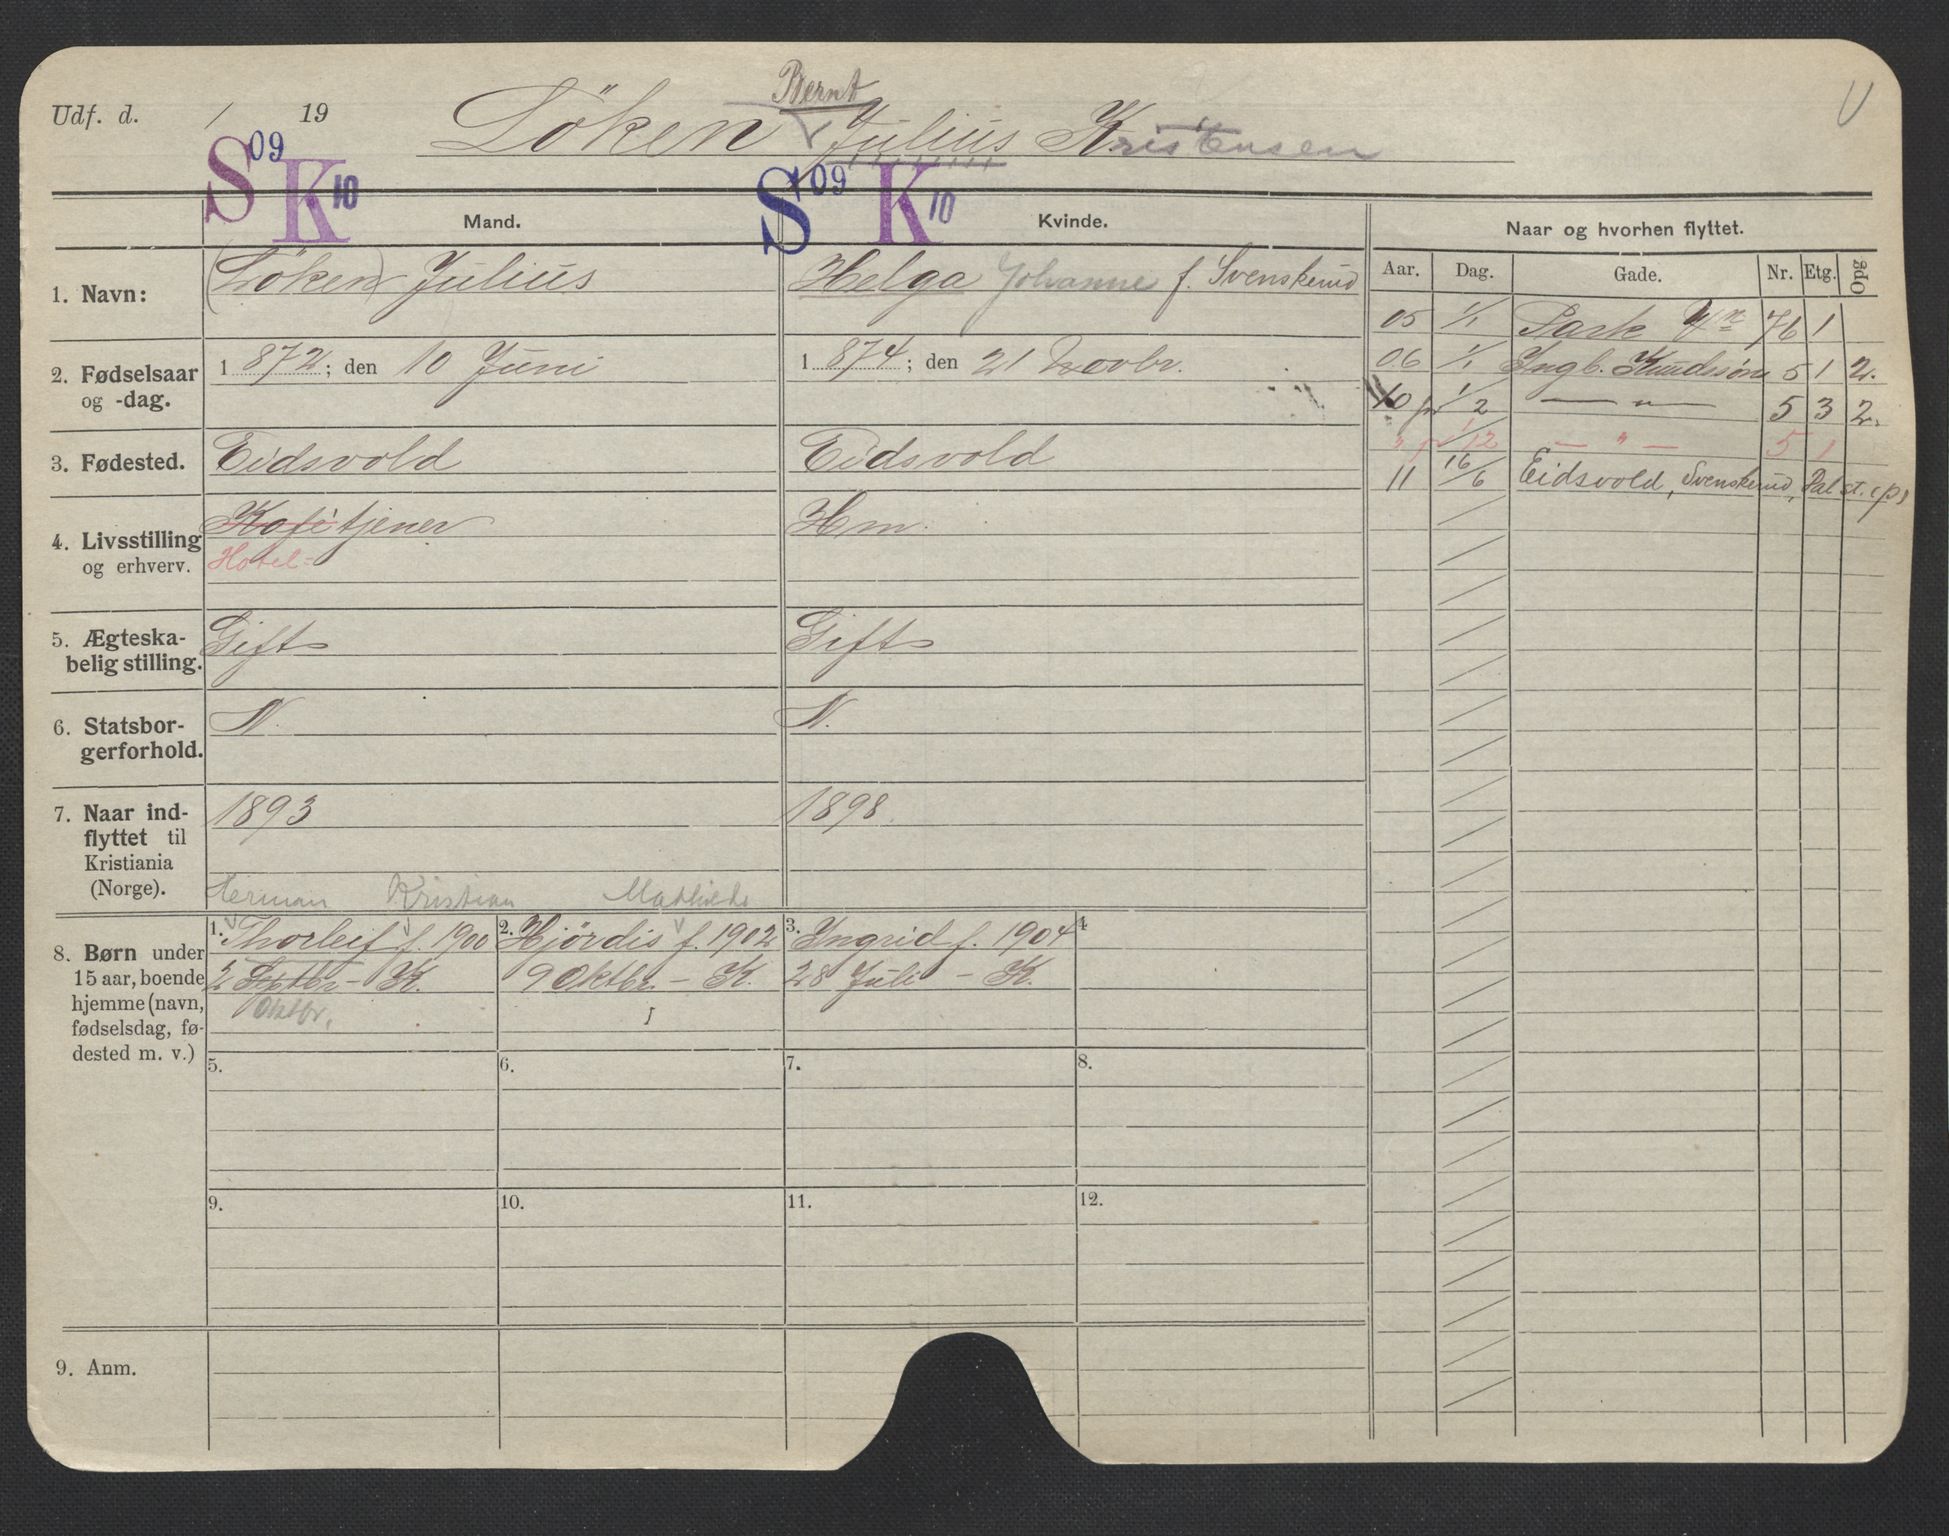 Bernt
Udf. d. / 19 Löken Julius Kristensen
S 09 K 10 S 09 K 10
Mand. Kvinde. Naar og hvorhen flyttet.
Aar. Dag. Gade. Nr. Etg. Opg
1. Navn: (Löken) Julius Helga Johanne f. Svenskerud
05 1/1 Park 76 1
2. Fødselsaar og -dag. 1872; den 10 Juni 1874; den 21 Novbr.
06 1/1 Ingb. Knudsøns 5 1 2.
10 pr 1/2 — " — 5 3 2.
" pr 1/12 — " — 5 1
3. Fødested. Eidsvold Eidsvold
11 16/6 Eidsvold, Svenskerud, Dal st. (p)
4. Livsstilling og erhverv. Kafetjener Hm.
Hotel-
5. Ægteska-
belig stilling. Gift Gift
6. Statsbor-
gerforhold. N. N.
7. Naar ind-
flyttet til
Kristiania
(Norge). 1893 1898
Herman Kristian Mathilde
8. Børn under
15 aar, boende
hjemme (navn,
fødselsdag, fø-
dested m. v.)
1. Thorleif f. 1900
2 Septbr - K.
Oktbr.
2. Hjördis f. 1902
9 Oktbr. - K.
3. Ingrid f. 1904
28 Juli - K.
4
5. 6. 7. 8.
9. 10. 11. 12.
9. Anm.